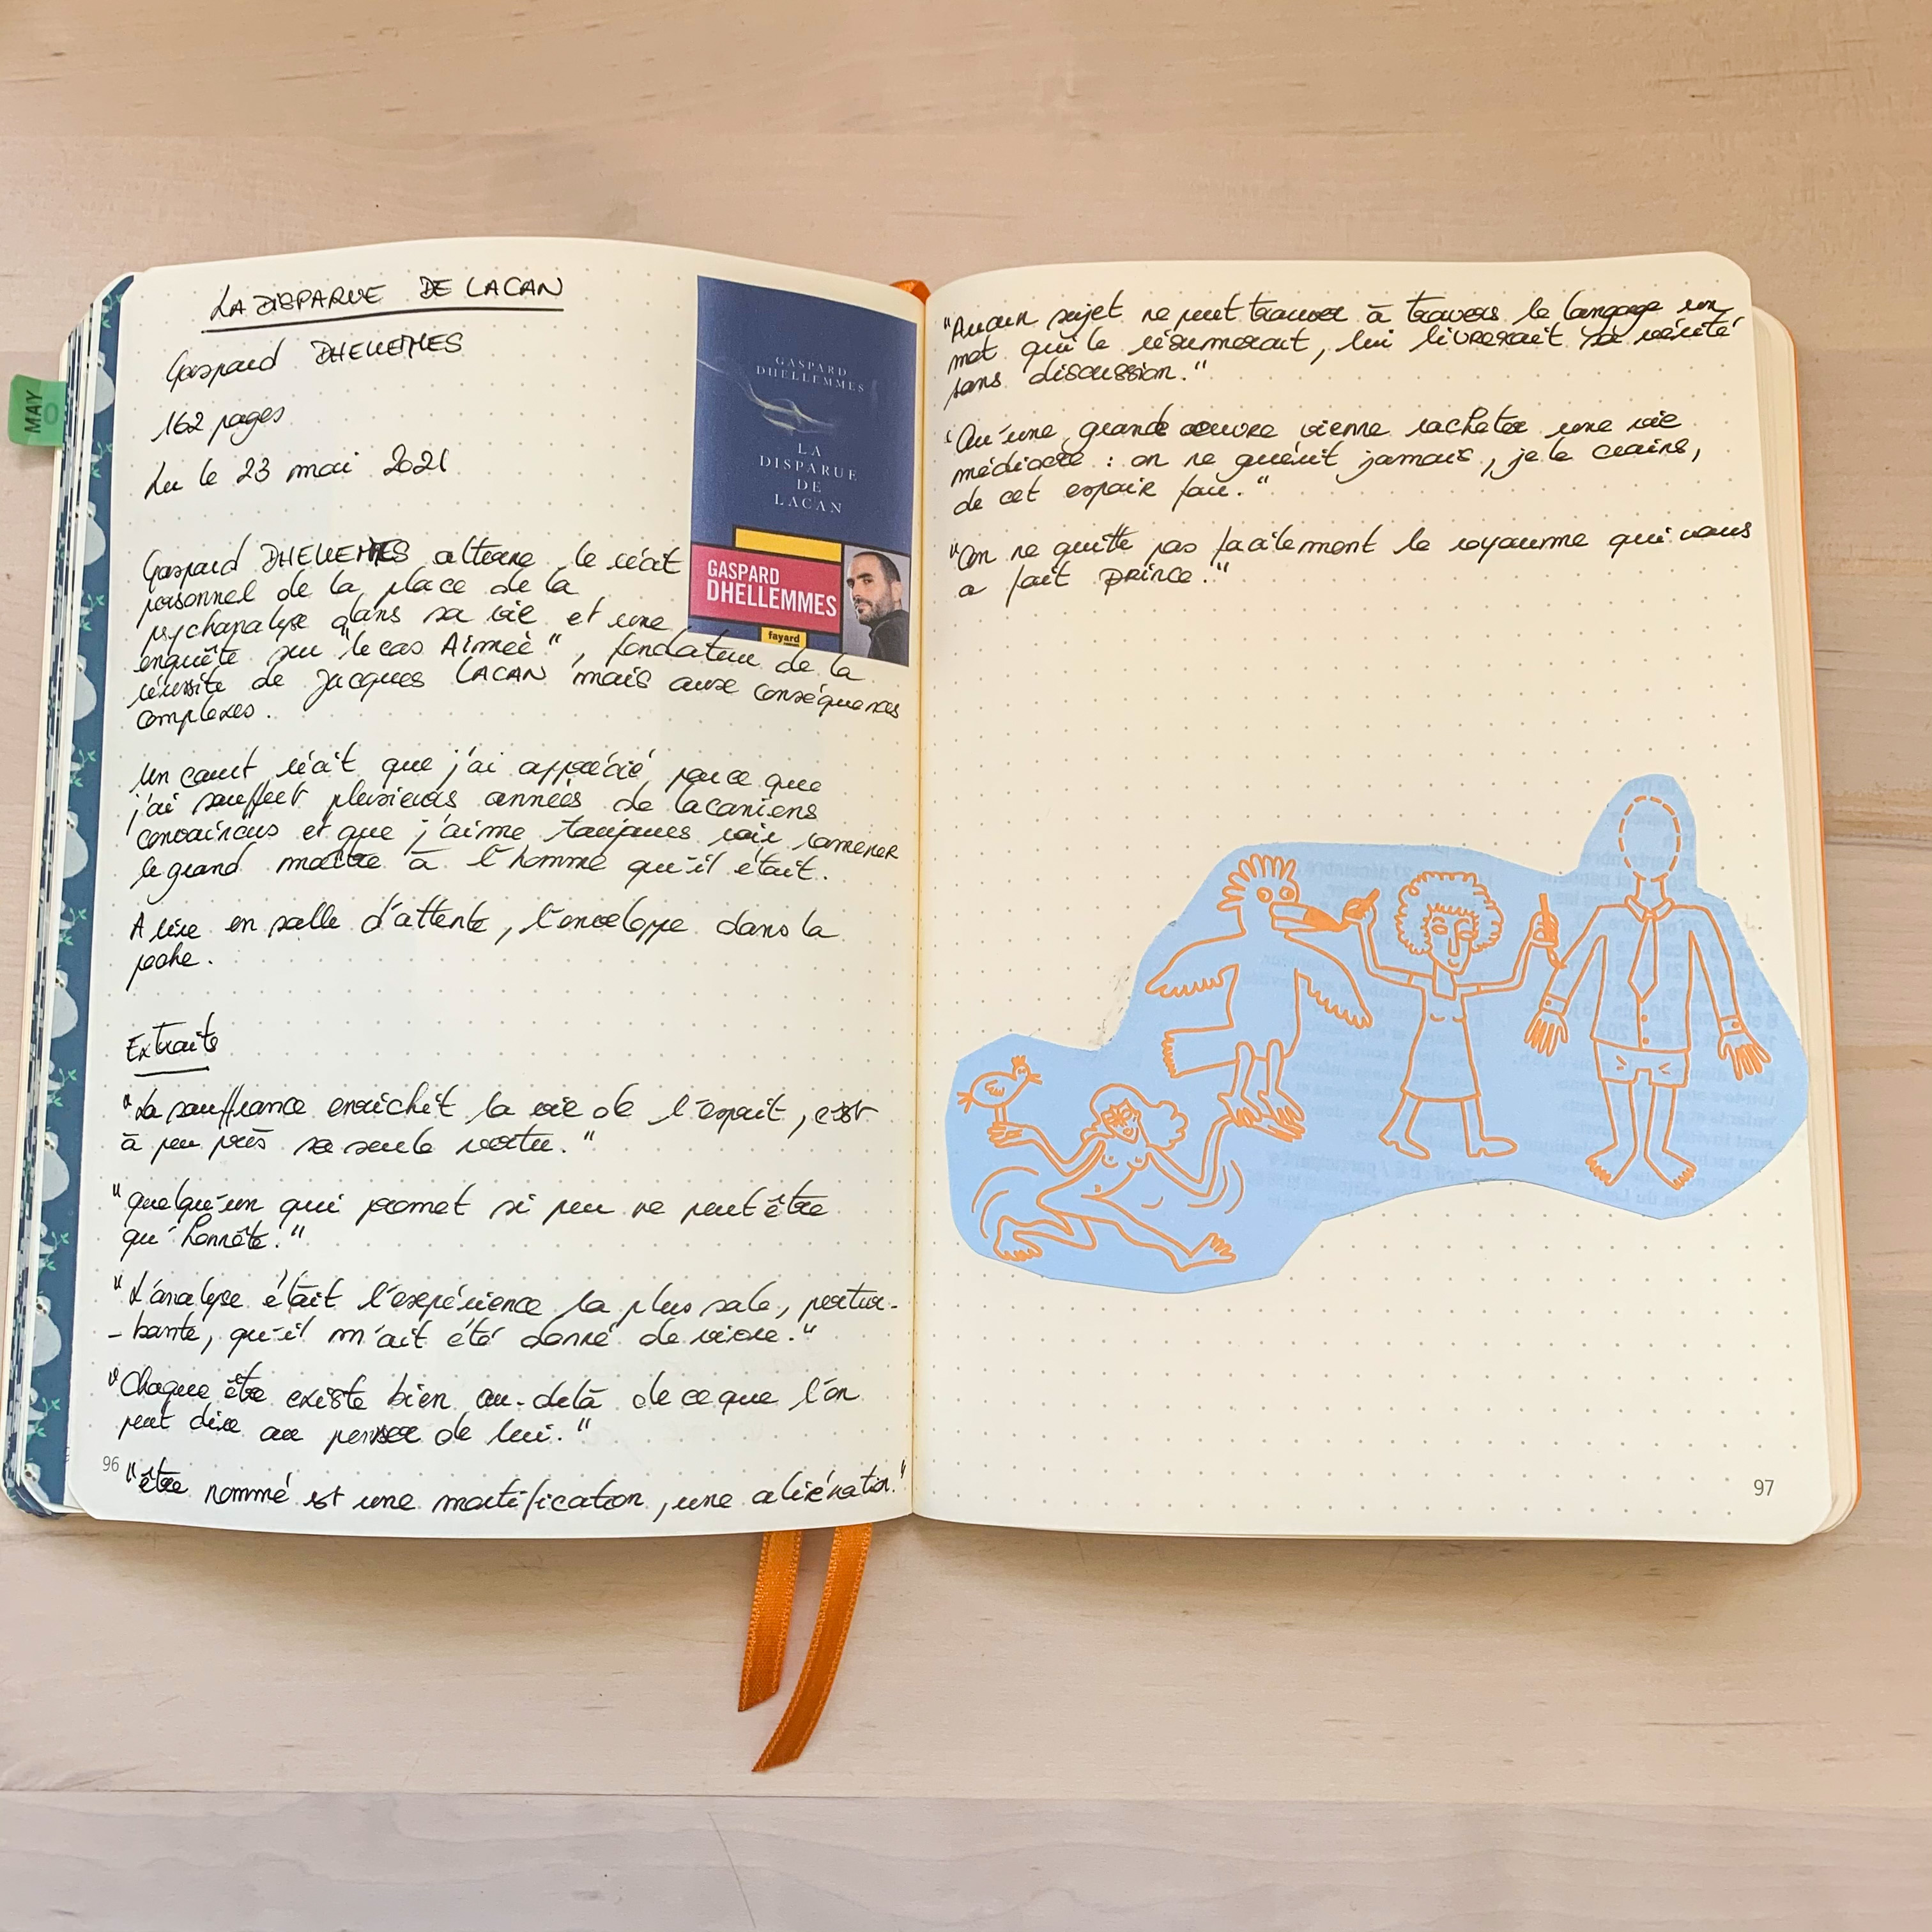 MAY
LA DISPARUE DE LACAN
Gaspard DHELLEMMES
162 pages
Lu le 23 mai 2021
GASPARD
DHELLEMMES
LA
DISPARUE
DE
LACAN
GASPARD
DHELLEMMES
fayard
Gaspard DHELLEMMES alterne le récit
personnel de la place de la
psychanalyse dans sa vie et une
enquête sur "le cas Aimée", fondateur de la
réussite de Jacques LACAN mais aux conséquences
complexes.
Un court récit que j'ai apprécié parce que
j'ai souffert plusieurs années de lacaniens
convaincus et que j'aime toujours voir ramener
le grand maître à l'homme qu'il était.
A lire en salle d'attente, l'enveloppe dans la
poche.
Extraits
"La souffrance enrichit la vie de l'esprit, c'est
à peu près sa seule vertu."
"quelqu'un qui promet si peu ne peut être
qu'honnête."
"L'analyse était l'expérience la plus sale, pertur-
-bante, qu'il m'ait été donné de vivre."
"Chaque être existe bien au-delà de ce que l'on
peut dire ou penser de lui."
"être nommé est une mortification, une aliénation."
96
"Aucun sujet ne peut trouver à travers le langage un
mot qui le résumerait, lui livrerait sa vérité
sans discussion."
"Qu'une grande oeuvre vienne racheter une vie
médiocre : on ne guérit jamais, je le crains,
de cet espoir fou."
"On ne quitte pas facilement le royaume qui vous
a fait prince."
97